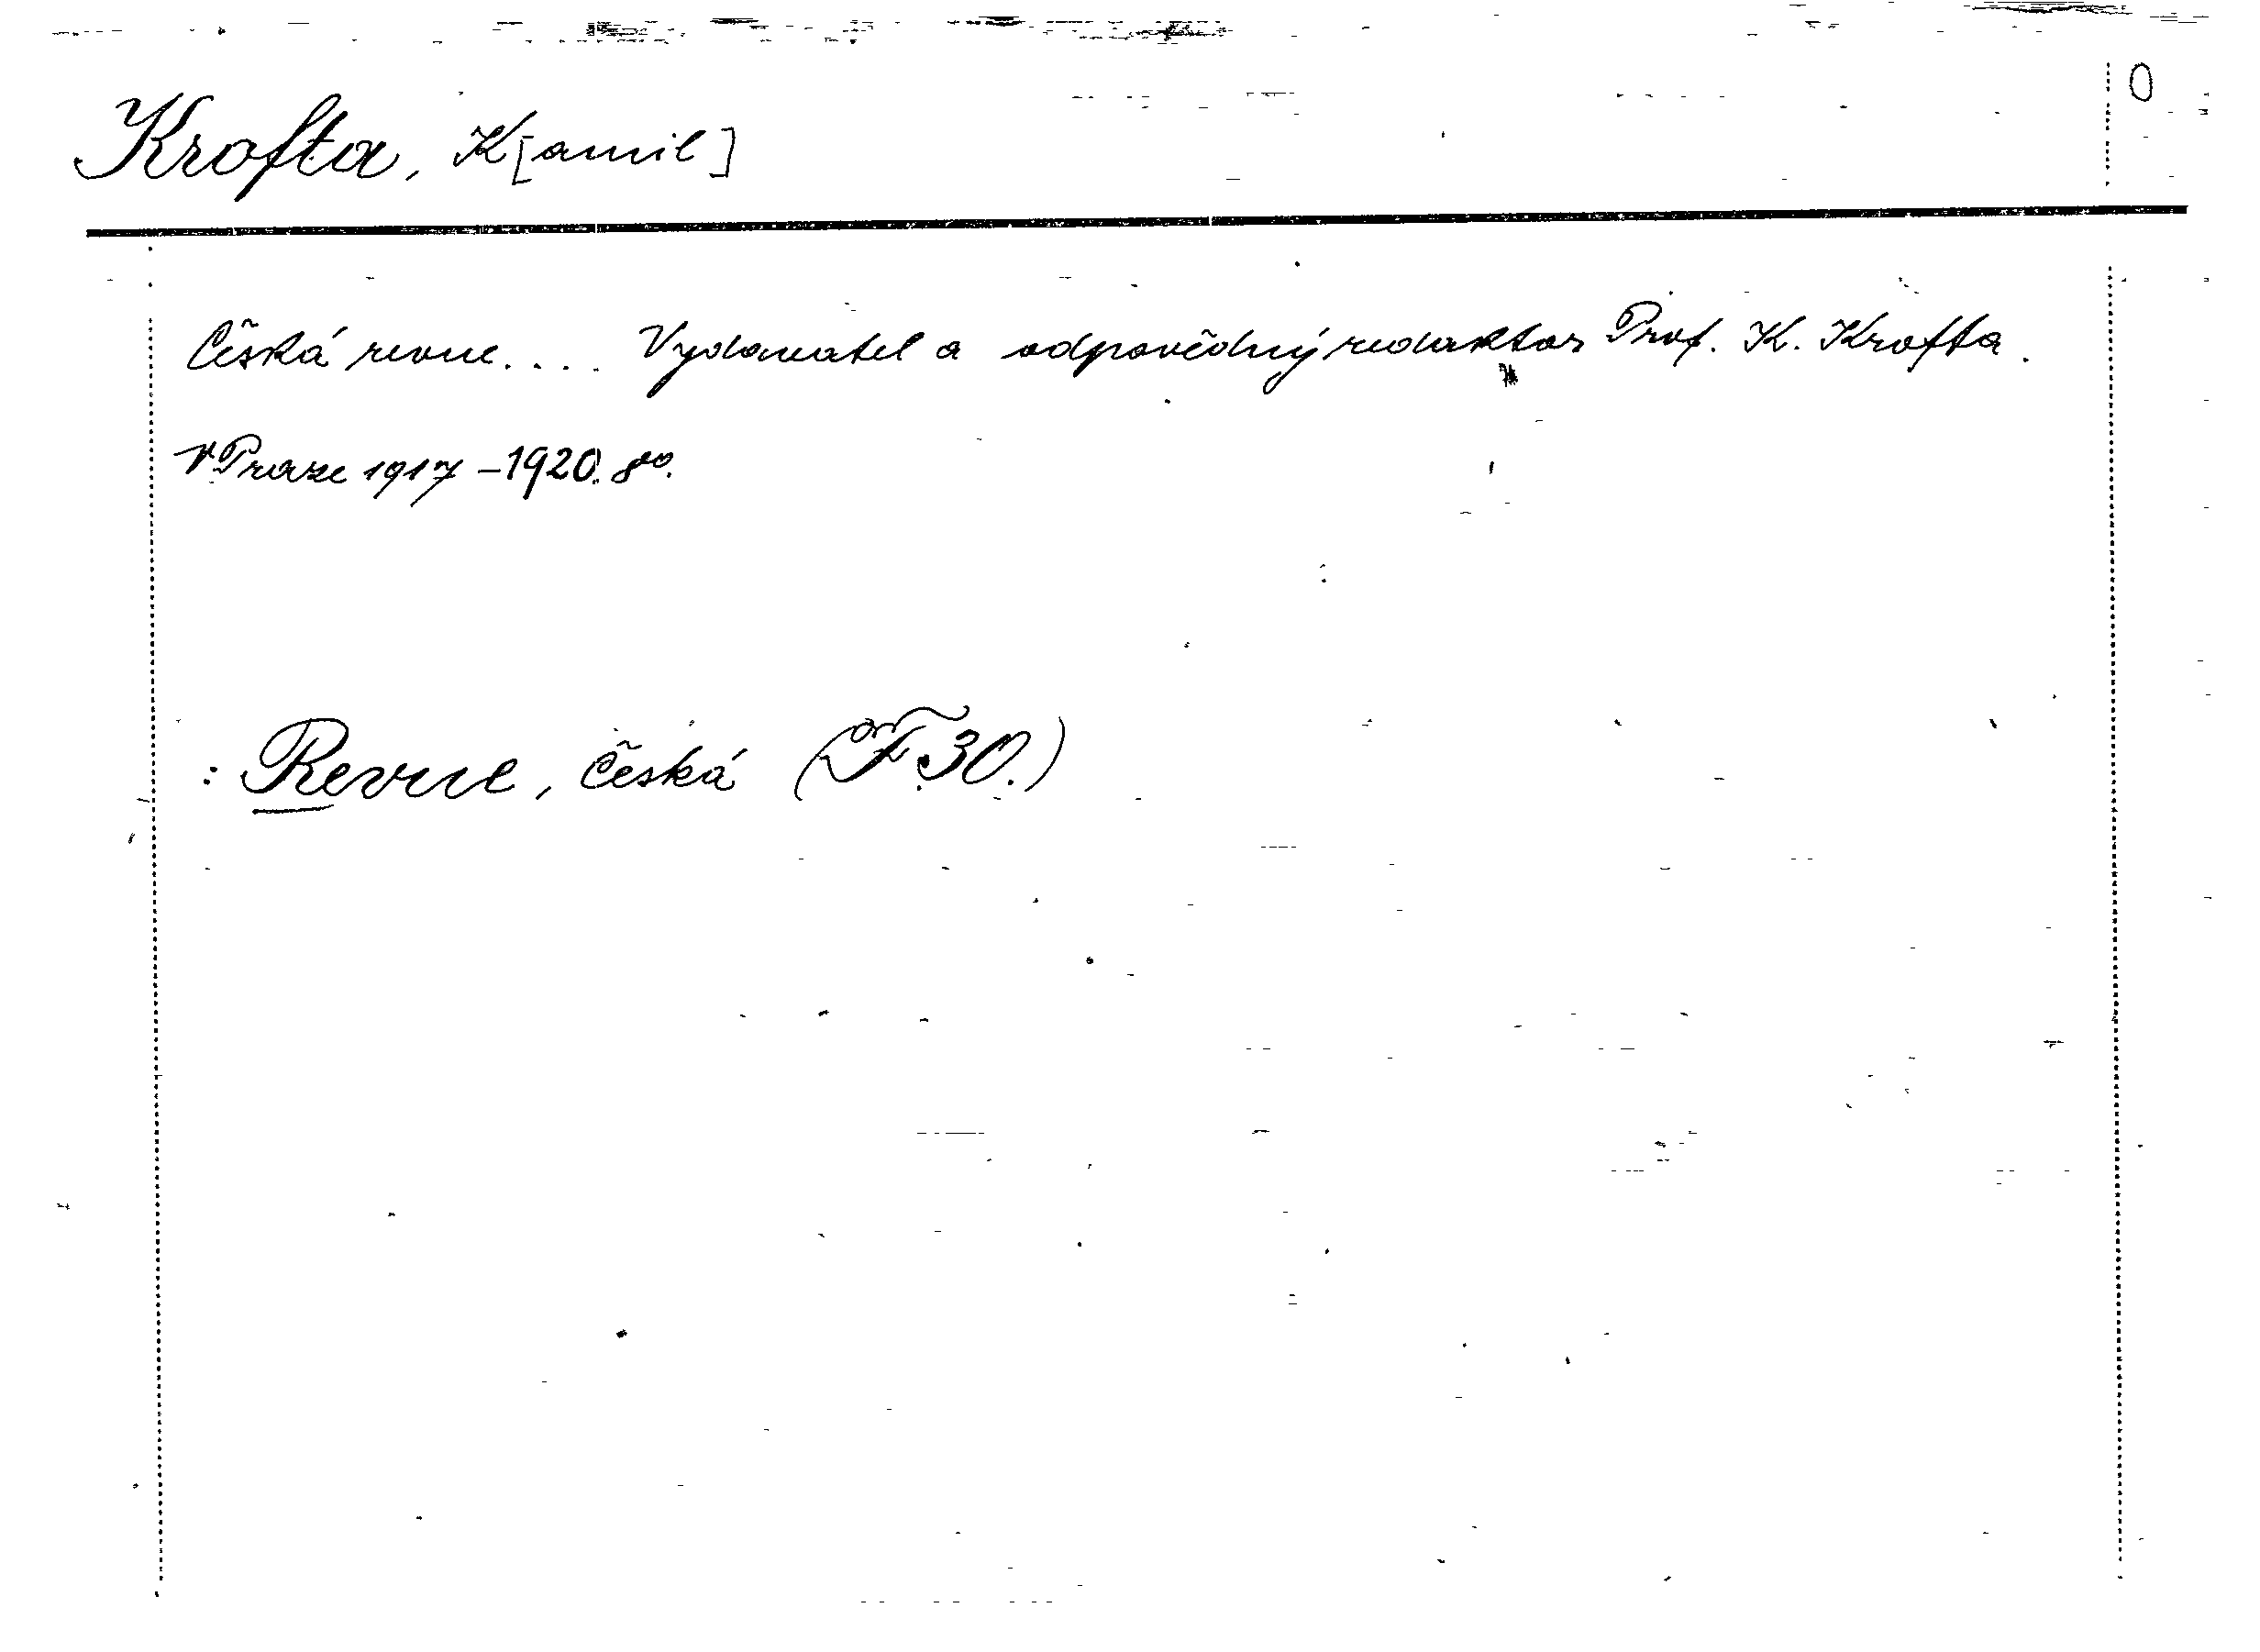 O
Krofta, K[amil]
Česká revue.... Vydavatel a odpovědný redaktor Prof. K. Krofta.
V Praze 1917–1920. 8°.
: Revue, česká (F.30.)